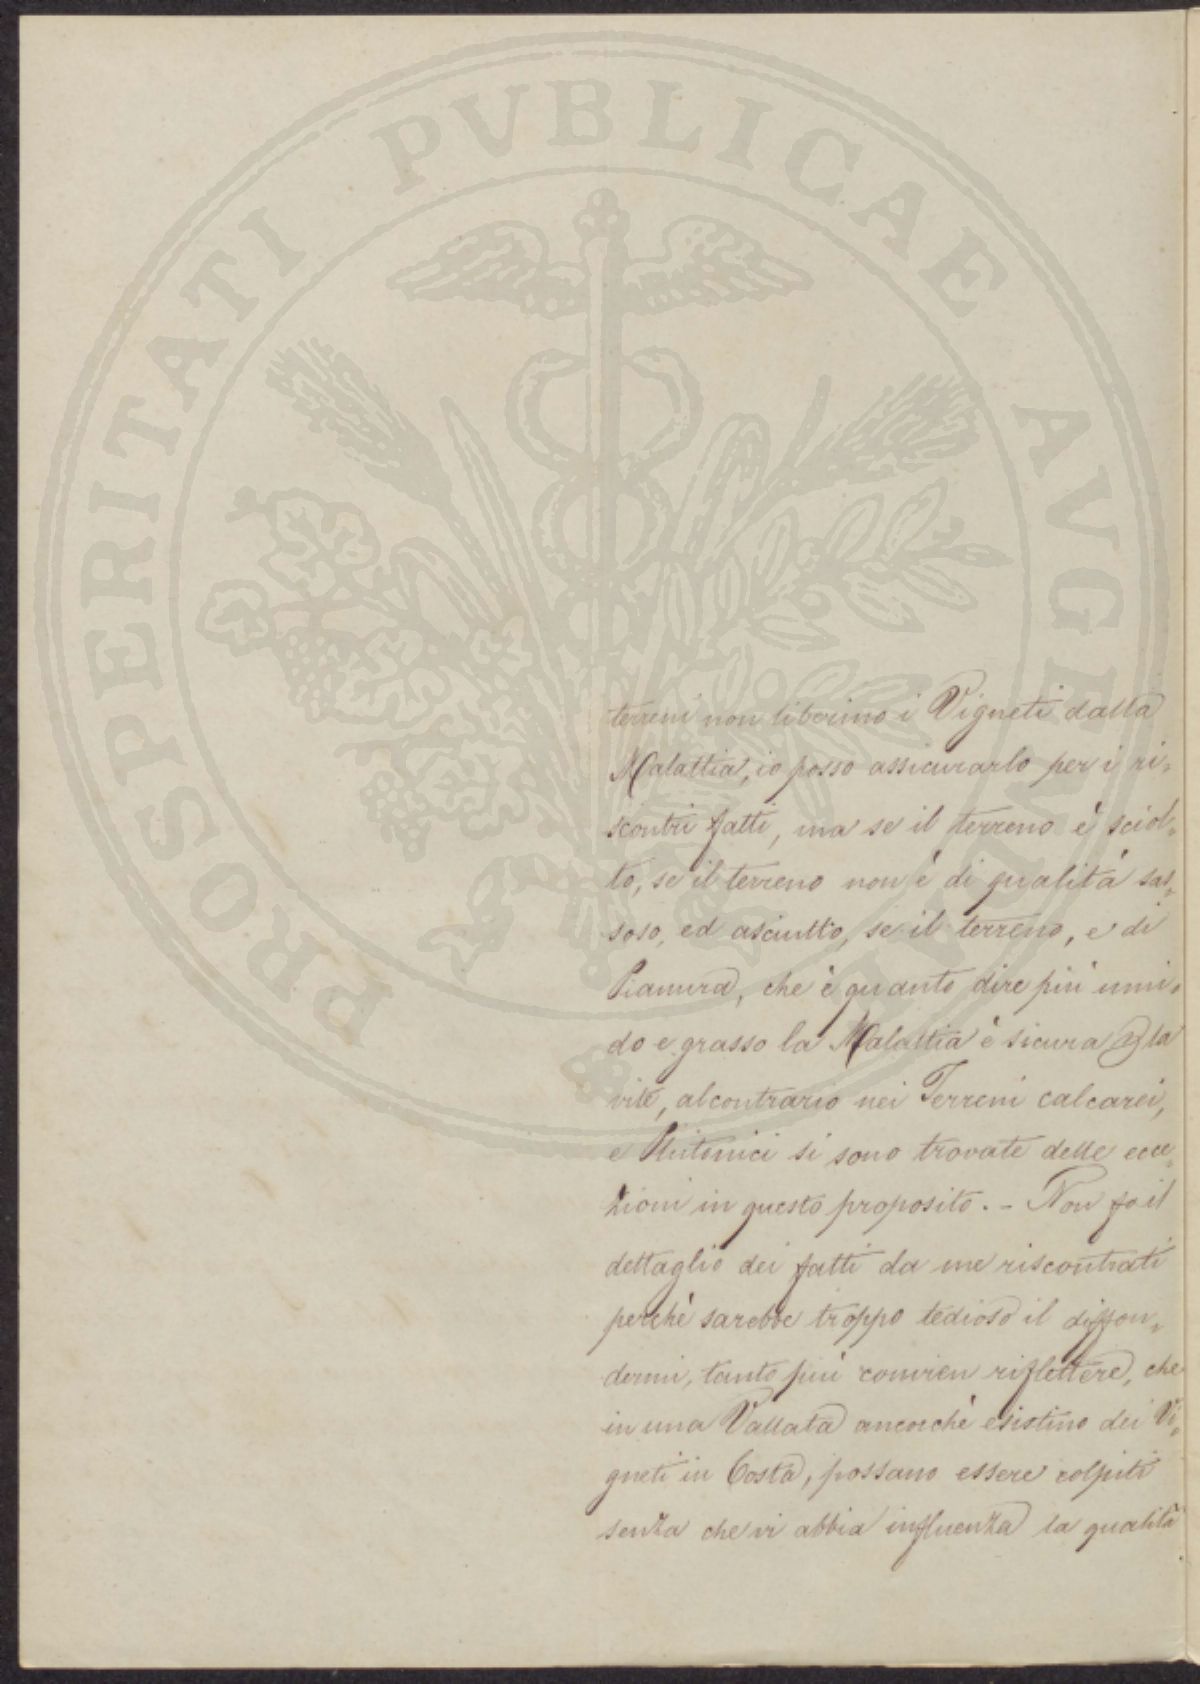 PROSPERITATI PVBLICAE AVGENDAE
terreni non liberino i Vigneti dalla
Malattia, io posso assicurarlo per i ri=
scontri fatti, ma se il terreno è sciol=
to, se il terreno non è di qualità sas=
soso, ed asciutto, se il terreno, e di
Pianura, che è quanto dire più umi=
do e grasso la Malattia è sicura la
vite, al contrario nei Terreni calcarei,
e Plutonici si sono trovate delle ecce=
zioni in questo proposito. - Non fo il
dettaglio dei fatti da me riscontrati
perchè sarebbe troppo tedioso il diffon=
dermi, tanto più convien riflettere, che
in una Vallata ancorchè esistino dei Vi=
gneti in Costa, possano essere colpiti
senza che vi abbia influenza la qualità